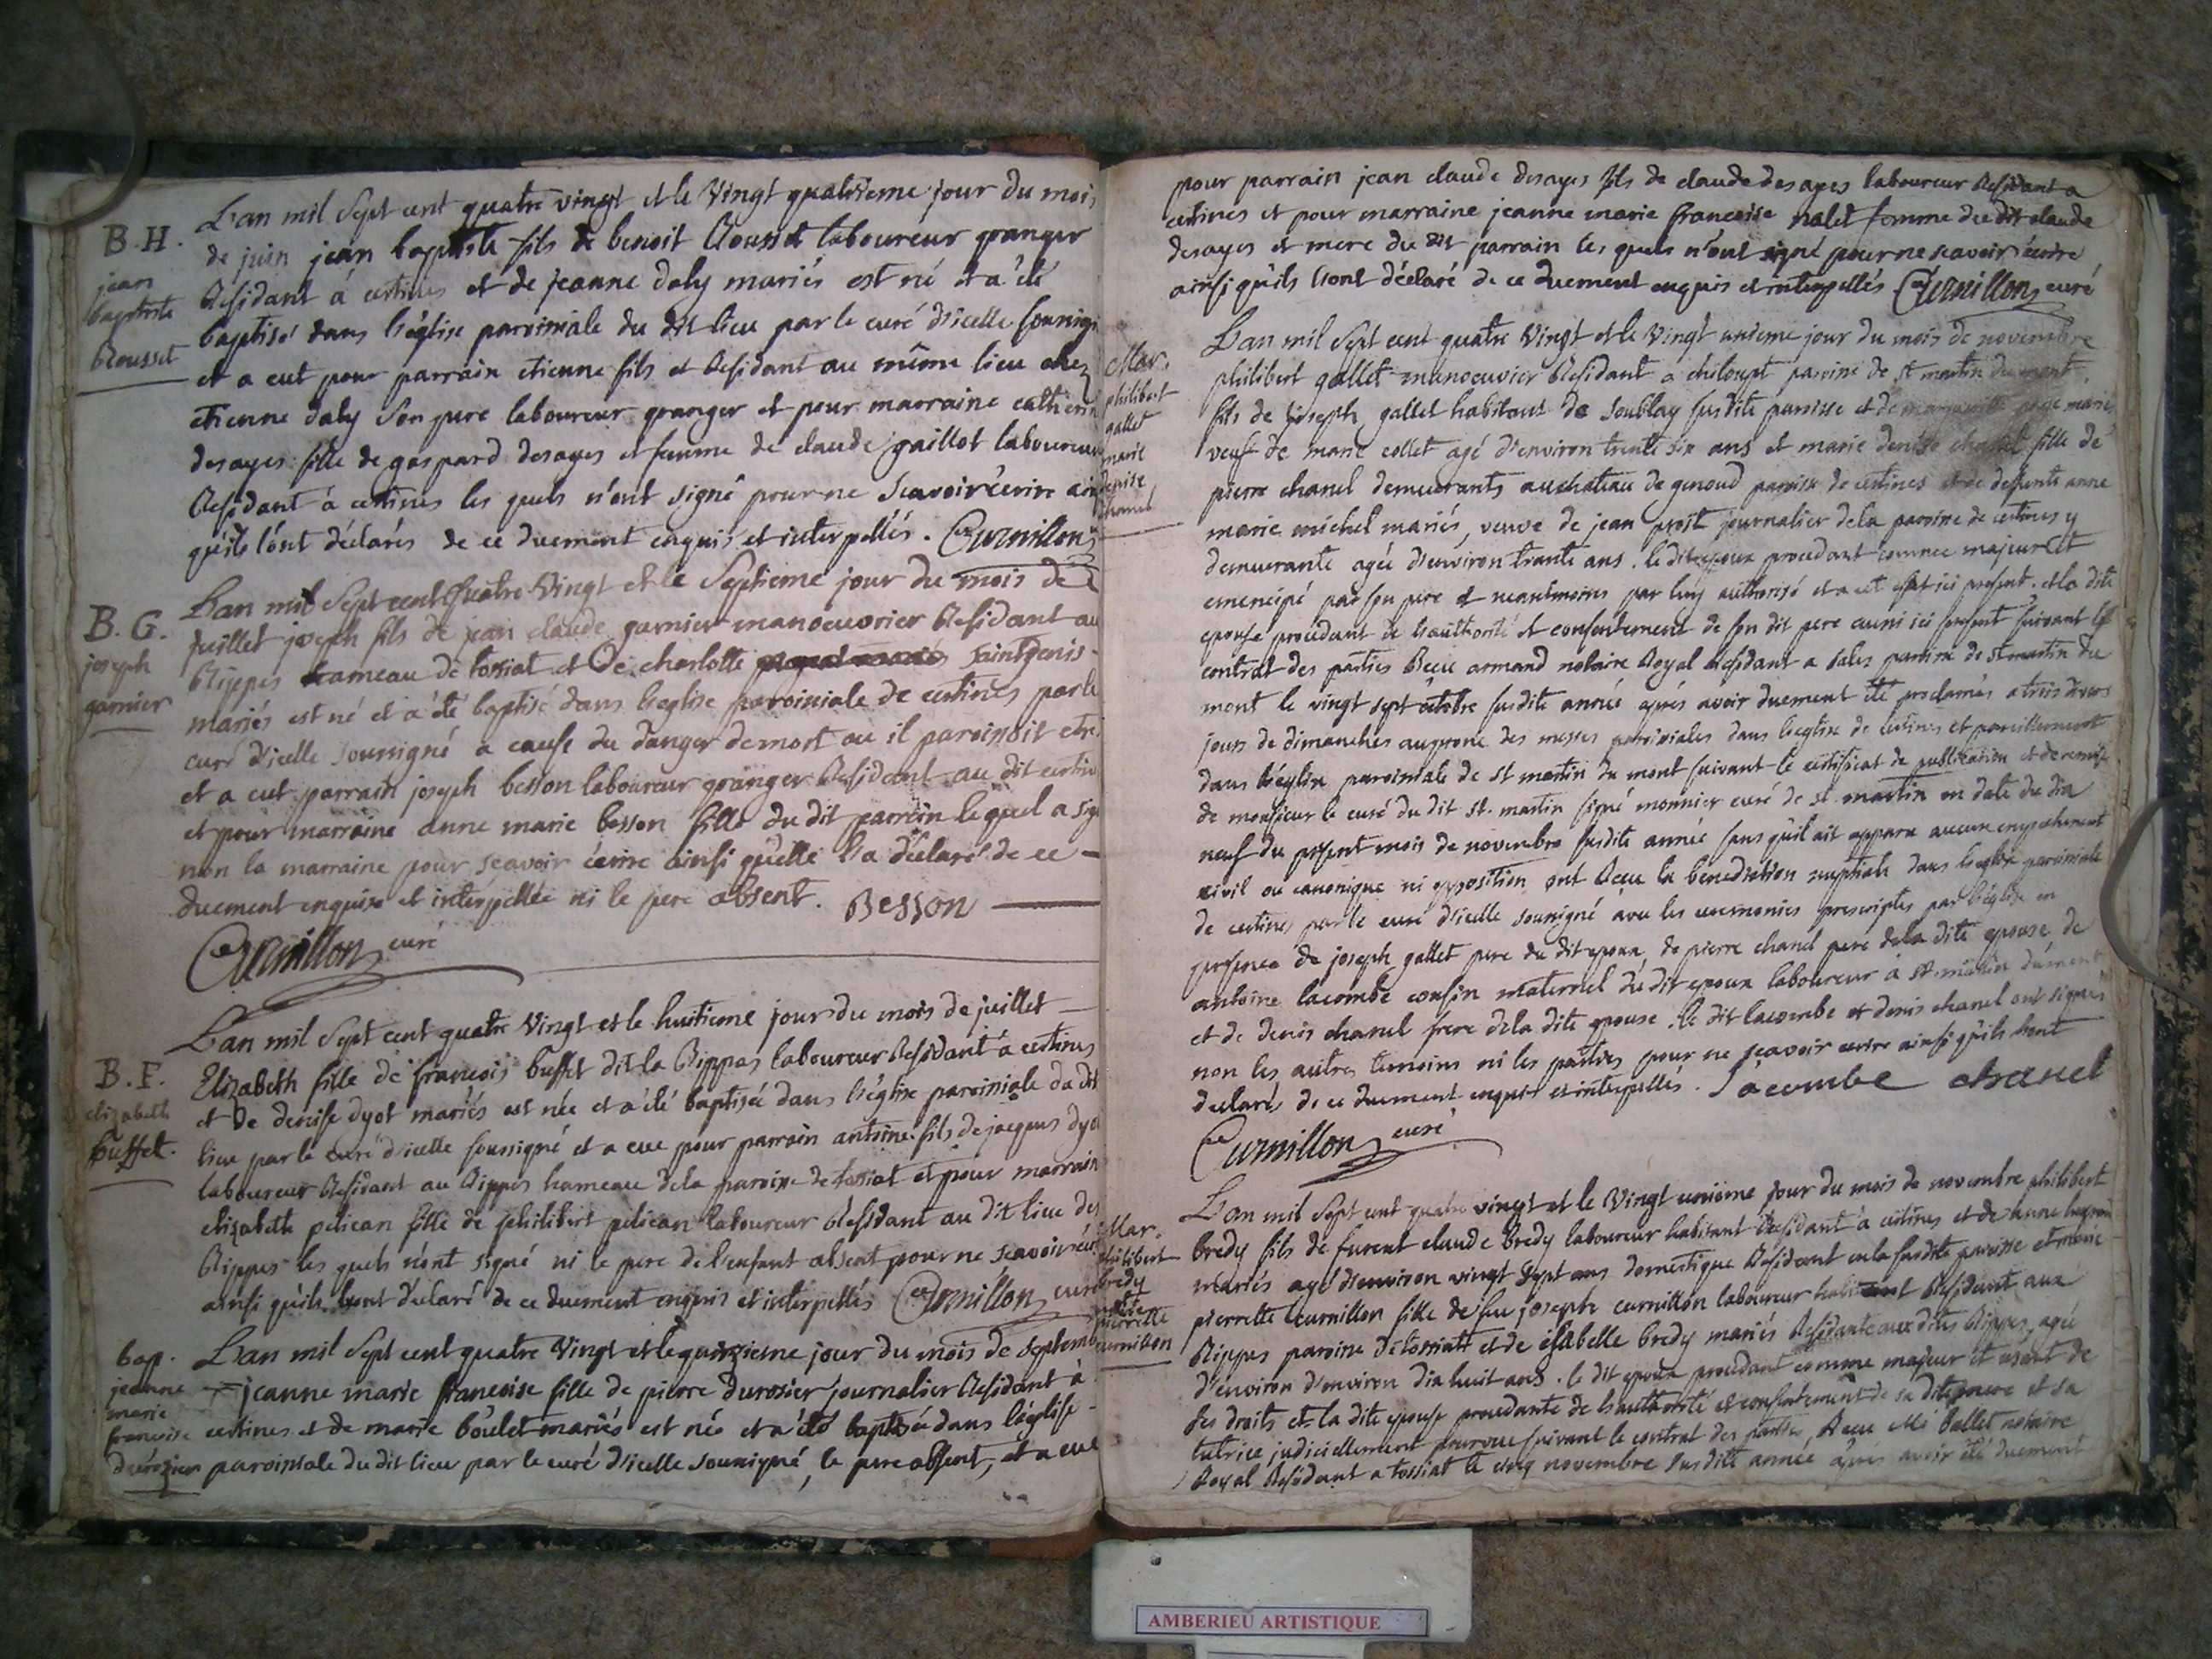 B. H.
jean
baptiste
Rousset
L'an mil Sept cent quatre vingt et le Vingt quatrieme jour du mois
de juin jean baptiste fils de benoit Rousset laboureur granger
Residant à certines et de jeanne daly mariés est né et a été
baptisé dans l'église paroissiale du dit lieu par le curé d'icelle soussigné
et a eut pour parrain etienne fils et Residant au même lieu chez
etienne daly son pere laboureur granger et pour marraine catherine
desayes fille de gaspard desayes et femme de claude gaillot laboureur
Residant à certines les quels n'ont signé pour ne Scavoir écrire ain
qu'ils l'ont déclarés de ce duement enquis et interpellés. Curnillon
B. G.
joseph
garnier
L'an mil Sept cent quatre Vingt et le Septieme jour du mois de
juillet joseph fils de jean claude garnier manoeuvrier Residant au
Rippes hameau de tossiat et de charlotte saint genis
mariés est né et a été baptisé dans l'eglise paroissiale de certines par le
curé d'icelle soussigné a cause du danger de mort ou il paroissoit etre
et a eut parrain joseph besson laboureur granger Residant au dit certines
et pour marraine anne marie besson fille du dit parrain le quel a signé
non la marraine pour scavoir écrire ainsi qu'elle l'a déclaré de ce
duement enquise et interpellée ni le pere absent. Besson
Curnillon curé
B. F.
elizabeth
buffet.
L'an mil Sept cent quatre Vingt et le huitieme jour du mois de juillet
Elizabeth fille de francois buffet dit la Rippes laboureur Residant à certines
et de denise dyot mariés est née et a été baptisée dans l'église paroissiale du dit
lieu par le curé d'icelle soussigné et a eue pour parrain antoine fils de jacques dyot
laboureur Residant au Rippes hameau de la paroisse de tossiat et pour marraine
elizabeth pelican fille de philibert pelican laboureur Residant au dit lieu des
Rippes les quels n'ont signé ni le pere de l'enfant absent pour ne scavoir écri
ainsi qu'ils l'ont déclaré de ce duement enquis et interpellés Curnillon curé
bap.
jeanne
marie
francoise
durozier
L'an mil Sept cent quatre Vingt et le quinzieme jour du mois de septembre
jeanne marie francoise fille de pierre durosier journalier Residant à
certines et de marie boulet mariés est née et a été baptisée dans l'église
paroissiale du dit lieu par le curé d'icelle soussigné, le pere absent, et a eue
pour parrain jean claude desayes fils de claude desayes laboureur Residant a
certines et pour marraine jeanne marie francoise nalet femme du dit claude
desayes et mere du dit parrain les quels n'ont signé pour ne scavoir écrire
ainsi qu'ils l'ont déclaré de ce duement enquis et interpellés Curnillon curé
Mar.
philibert
gallet
marie
denise
chanel
L'an mil Sept cent quatre Vingt et le Vingt unieme jour du mois de novembre
philibert gallet manoeuvrier Residant à chiloupt paroisse de st martin du mont.
fils de joseph gallet habitant de soublay susdite paroisse et de
veuf de marie collet agé d'environ trente six ans et marie denise chanel fille de
pierre chanel demeurants au chateau de genoud paroisse de certines et de defunte anne
marie michel mariés, veuve de jean prost journalier de la paroisse de certines y
demeurante agée d'environ trante ans. le dit epoux procedant comme majeur et
emencipé par son pere et neantmoins par luy authorisé et a cet effet ici present. et la dite
epouse procedant de l'authorité et consentement de son dit pere aussi ici present suivant le
contrat des parties Recu armand notaire Royal Residant a Salles paroisse de st martin du
mont le vingt sept octobre susdite année après avoir duement été proclamés a trois divers
jours de dimanches au prone des messes paroissiales dans l'eglise de certines et pareillement
dans l'église paroissiale de st martin du mont suivant le certificat de publication et de remise
de monsieur le curé du dit st. martin signé monnier curé de st. martin en date du dix
neuf du present mois de novembre susdite année sans qu'il ait apparu aucun empechement
civil ou canonique ni opposition ont Recu la benediction nuptiale dans l'eglise paroissiale
de certines par le curé d'icelle soussigné avec les ceremonies prescriptes par l'église en
presence de joseph gallet pere du dit epoux, de pierre chanel pere de la dite epouse de
antoine lacombe cousin maternel du dit epoux laboureur à st martin du mont
et de denis chanel frere de la dite epouse. le dit lacombe et denis chanel ont signés
non les autres temoins ni les parties pour ne scavoir ecrire ainsi qu'ils l'ont
declarés de ce duement enquis et interpellés. Lacombe chanel
Curnillon curé
Mar.
philibert
bredy
pierrette
curnillon
L'an mil Sept cent quatre vingt et le Vingt unieme jour du mois de novembre philibert
bredy fils de furent claude bredy laboureur habitant Residant à certines et de anne
mariés agé d'environ vingt Sept ans domestique Residant en la susdite paroisse et marie
pierrette curnillon fille de feu joseph curnillon laboureur habitant Residant aux
Rippes paroisse de tossiatt et de isabelle bredy mariés Residante aux dites Rippes, agée
d'environ d'environ dix huit ans. le dit epoux procedant comme majeur et usant de
ses droits et la dite epouse procedante de l'authorité et consentement de sa dite mere et sa
tutrice judiciellement pourvue suivant le contrat des parties Recu Me ballet notaire
Royal Residant a tossiat le cinq novembre susdite année apres avoir été duement
AMBERIEU ARTISTIQUE